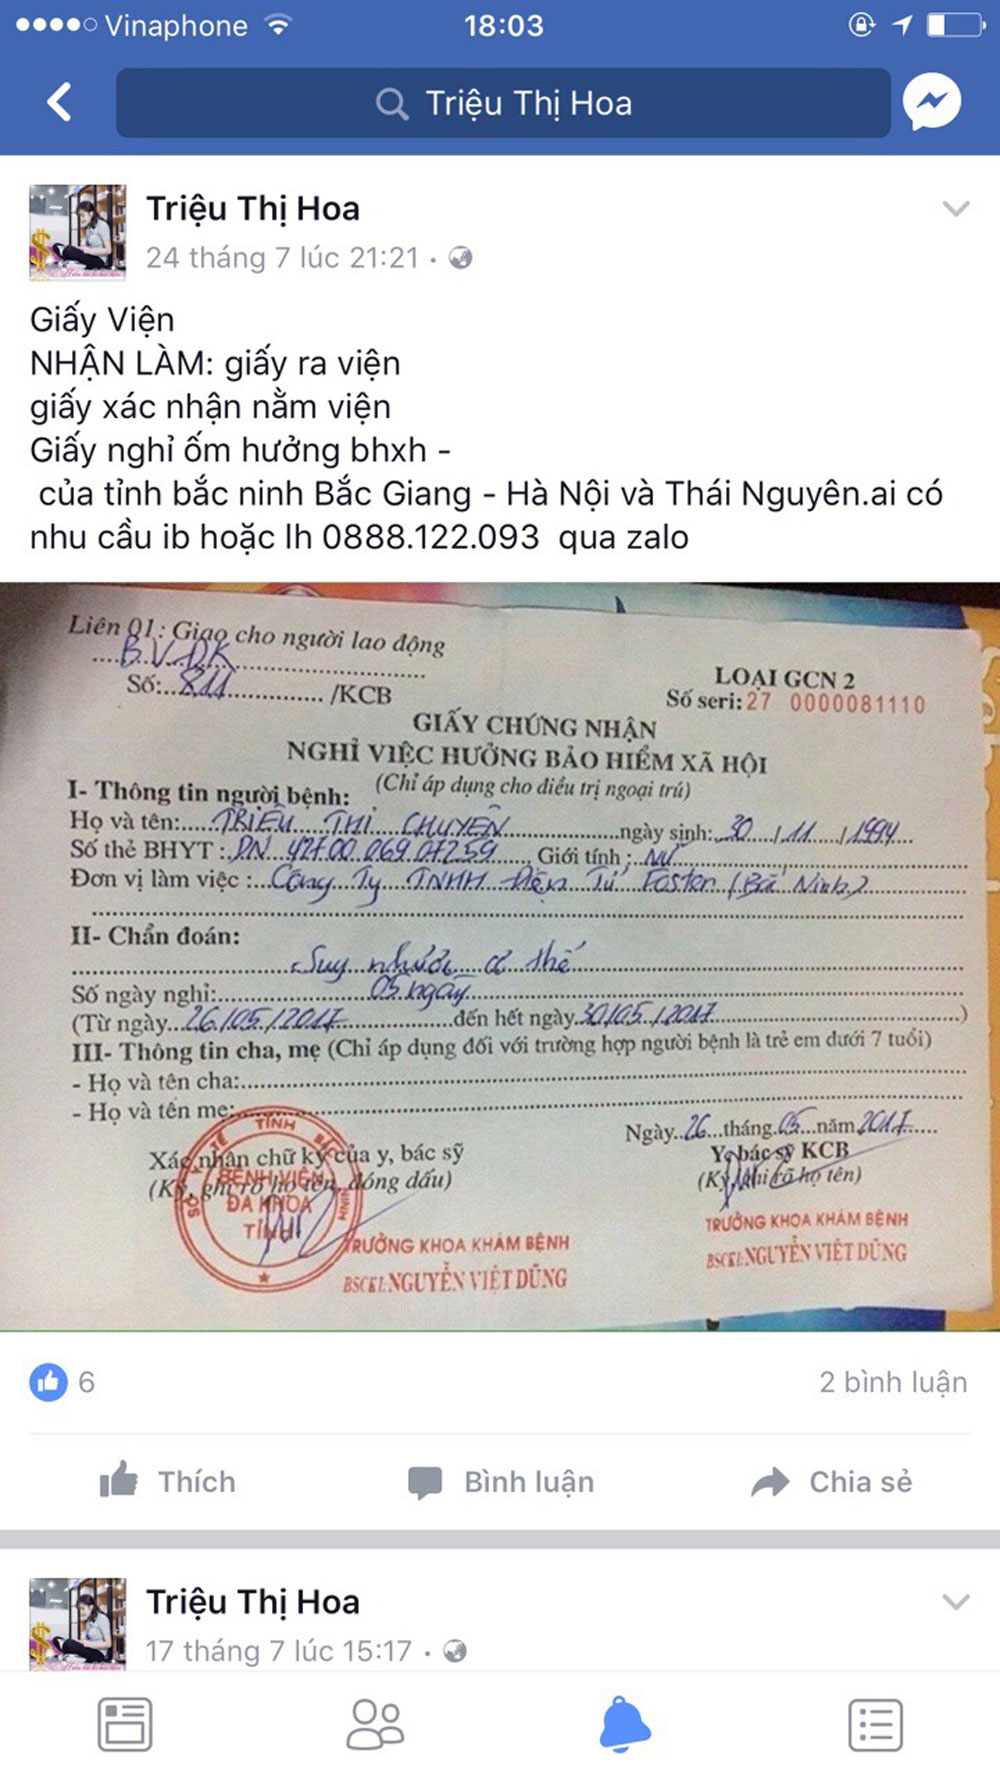 Vinaphone
18:03
Triệu Thị Hoa
Triệu Thị Hoa
24 tháng 7 lúc 21:21
Giấy Viện
NHẬN LÀM: giấy ra viện
giấy xác nhận nằm viện
Giấy nghỉ ốm hưởng bhxh -
của tỉnh bắc ninh Bắc Giang - Hà Nội và Thái Nguyên.ai có
nhu cầu ib hoặc lh 0888.122.093 qua zalo
Liên 01: Giao cho người lao động
B.V.ĐK
Số: 811 /KCB
LOẠI GCN 2
Số seri: 27 0000081110
GIẤY CHỨNG NHẬN
NGHỈ VIỆC HƯỞNG BẢO HIỂM XÃ HỘI
(Chỉ áp dụng cho điều trị ngoại trú)
I- Thông tin người bệnh:
Họ và tên: TRIỆU THỊ CHUYÊN ngày sinh: 30/11/1994
Số thẻ BHYT: DN 42700 069 07259 Giới tính: Nữ
Đơn vị làm việc: Công Ty TNHH Điện Tử Foster (Bắc Ninh)
II- Chẩn đoán:
Suy nhược cơ thể
Số ngày nghỉ: 05 ngày
(Từ ngày 26/05/2017 đến hết ngày 30/05/2017)
III- Thông tin cha, mẹ (Chỉ áp dụng đối với trường hợp người bệnh là trẻ em dưới 7 tuổi)
- Họ và tên cha:
- Họ và tên mẹ:
Ngày 26 tháng 05 năm 2017
Xác nhận chữ ký của y, bác sỹ
Y, bác sỹ KCB
(Ký, ghi rõ họ tên, đóng dấu)
(Ký, ghi rõ họ tên)
BỆNH VIỆN
ĐA KHOA
TỈNH
TRƯỞNG KHOA KHÁM BỆNH
BSCKI: NGUYỄN VIỆT DŨNG
TRƯỞNG KHOA KHÁM BỆNH
BSCKI: NGUYỄN VIỆT DŨNG
6
2 bình luận
Thích
Bình luận
Chia sẻ
Triệu Thị Hoa
17 tháng 7 lúc 15:17